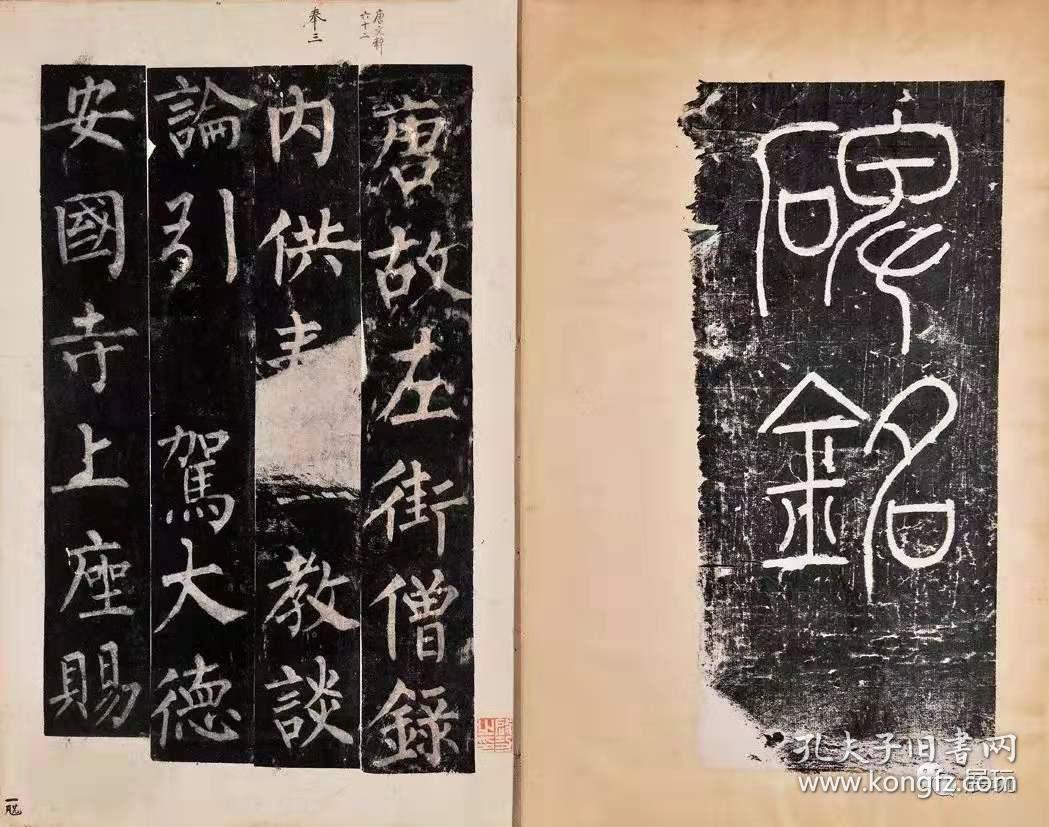 碑銘
唐文粹
六十二
奉三
唐故左街僧録
内供教談
論引駕大德
安國寺上座賜
孔夫子旧書网
www.kongfz.com